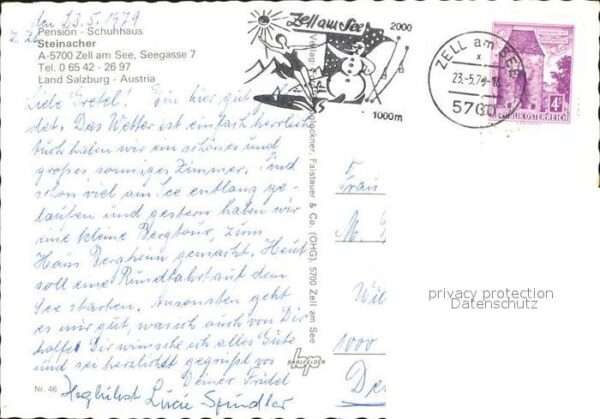 den 23.5.1979
Pension - Schuhhaus
Steinacher
A-5700 Zell am See, Seegasse 7
Tel. 0 65 42 - 26 97
Land Salzburg - Austria
Liebe Gretel! hier gut
Das Wetter ist einfach herrlich
haben wir ein schönes und
großes sonniges Zimmer. Sind
schon viel am See entlang ge-
laufen und gestern haben wir
eine kleine Bergtour, zum
Haus Bergheim gemacht. Heut
soll eine Rundfahrt auf dem
See starten. Ansonsten geht
es mir gut, was ich auch von Dir
hoffe. Dir wünsche ich alles Gute
und sei herzlichst gegrüßt von
Deiner Friedel
Nr. 46
Lucie Spindler
Zell am See
2000
1000m
ZELL am SEE
23.-5.79
5700
4S
REPUBLIK ÖSTERREICH
Verlag
Glockner, Faistauer & Co. (OHG), 5700 Zell am See
SAALFELDEN
Frau
M.
1000
privacy protection
Datenschutz